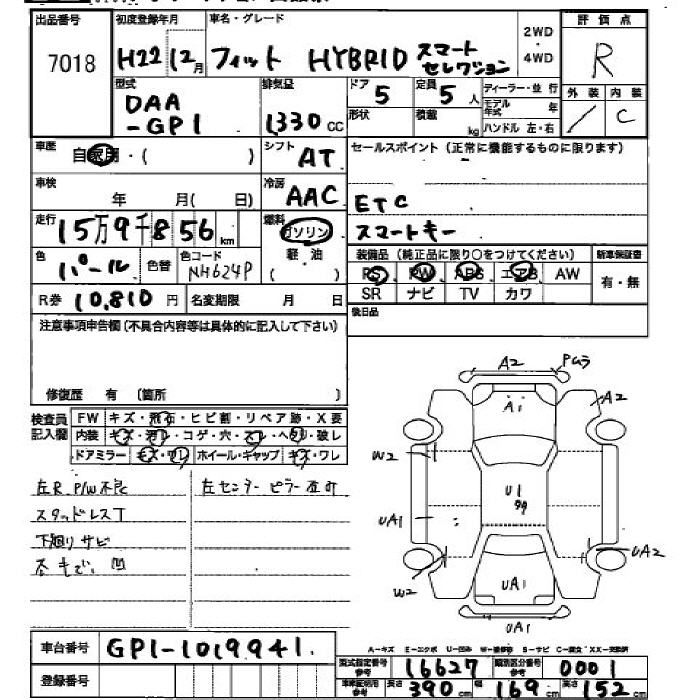 出品番号 初度登録年月 車名・グレード 2WD・4WD 評価点
7018 H22 12月 フィット HYBRID スマートセレクション R
型式 排気量 ドア 定員 ディーラー・並行 外装 内装
DAA-GP1 1,330cc 5 5人 モデル年式 年 / C
形状 積載 kg ハンドル 左・右
車歴 自家用・( ) シフト AT セールスポイント(正常に機能するものに限ります)
車検 年 月( 日) 冷房 AAC ETC
走行 15万9千856km 燃料 ガソリン 軽油 スマートキー
色 パール 色替 色コード NH624P 装備品(純正品に限り○をつけてください) 新車保証書
PS PW ABS エアB AW 有・無
R券 10,810円 名変期限 月 日 SR ナビ TV カワ
注意事項申告欄(不具合内容等は具体的に記入して下さい) 後日品
修復歴 有 〔箇所 〕
検査員記入欄 FW キズ・飛石・ヒビ割・リペア跡・X要
内装 キズ・汚レ・コゲ・穴・スレ・ヘタリ・破レ
ドアミラー キズ・ワレ ホイール・キャップ キズ・ワレ
左R P/W不良 左センターピラー
スタッドレスT
下廻りサビ
凹
A2
A1
A2
W2
U1
UA1
UA2
W2
UA1
UA1
車台番号 GP1-1019941
A-キズ E-エクボ U-凹み S-サビ
型式指定番号 参考 16627 類別区分番号 参考 0001
登録番号 参考 長さ 390cm 幅 169cm 高さ 152cm